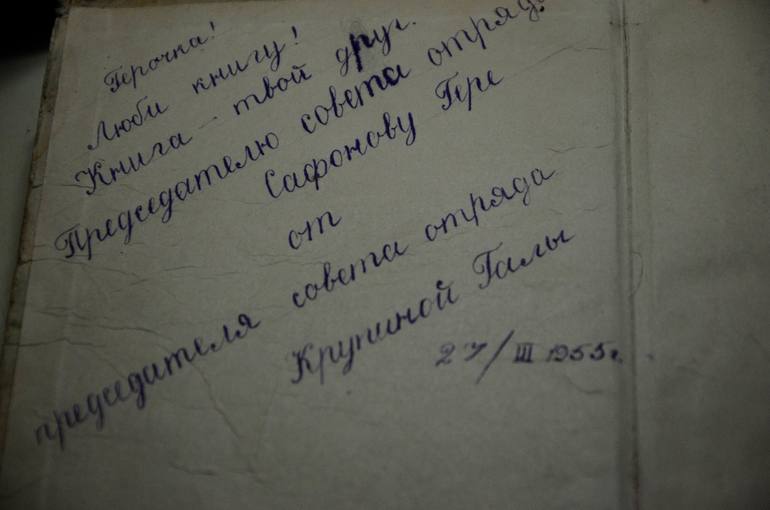 Герочка!
Люби книгу!
Книга - твой друг.
Председателю совета отряда
Сафонову Гере
от
председателя совета отряда
Крупиной Галы
27/III 1955г.